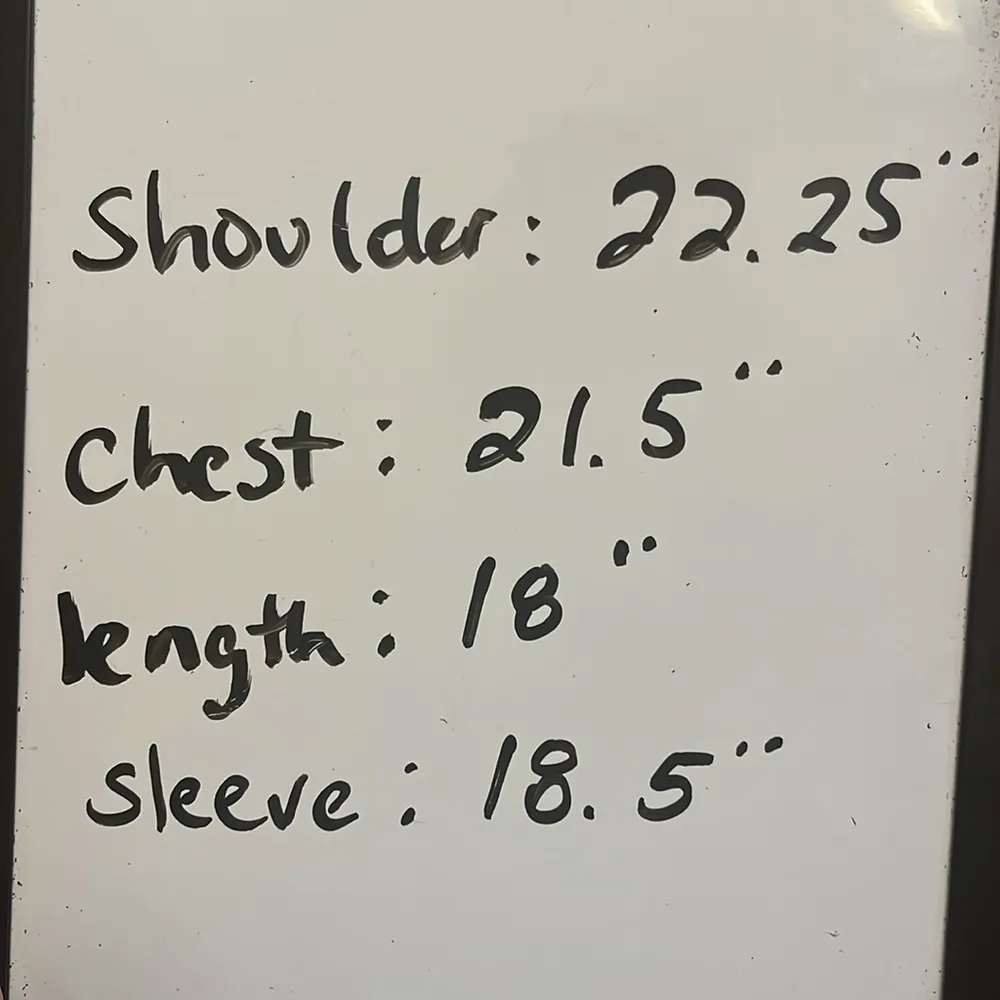 Shoulder: 22.25"
Chest: 21.5"
length: 18"
sleeve: 18.5"